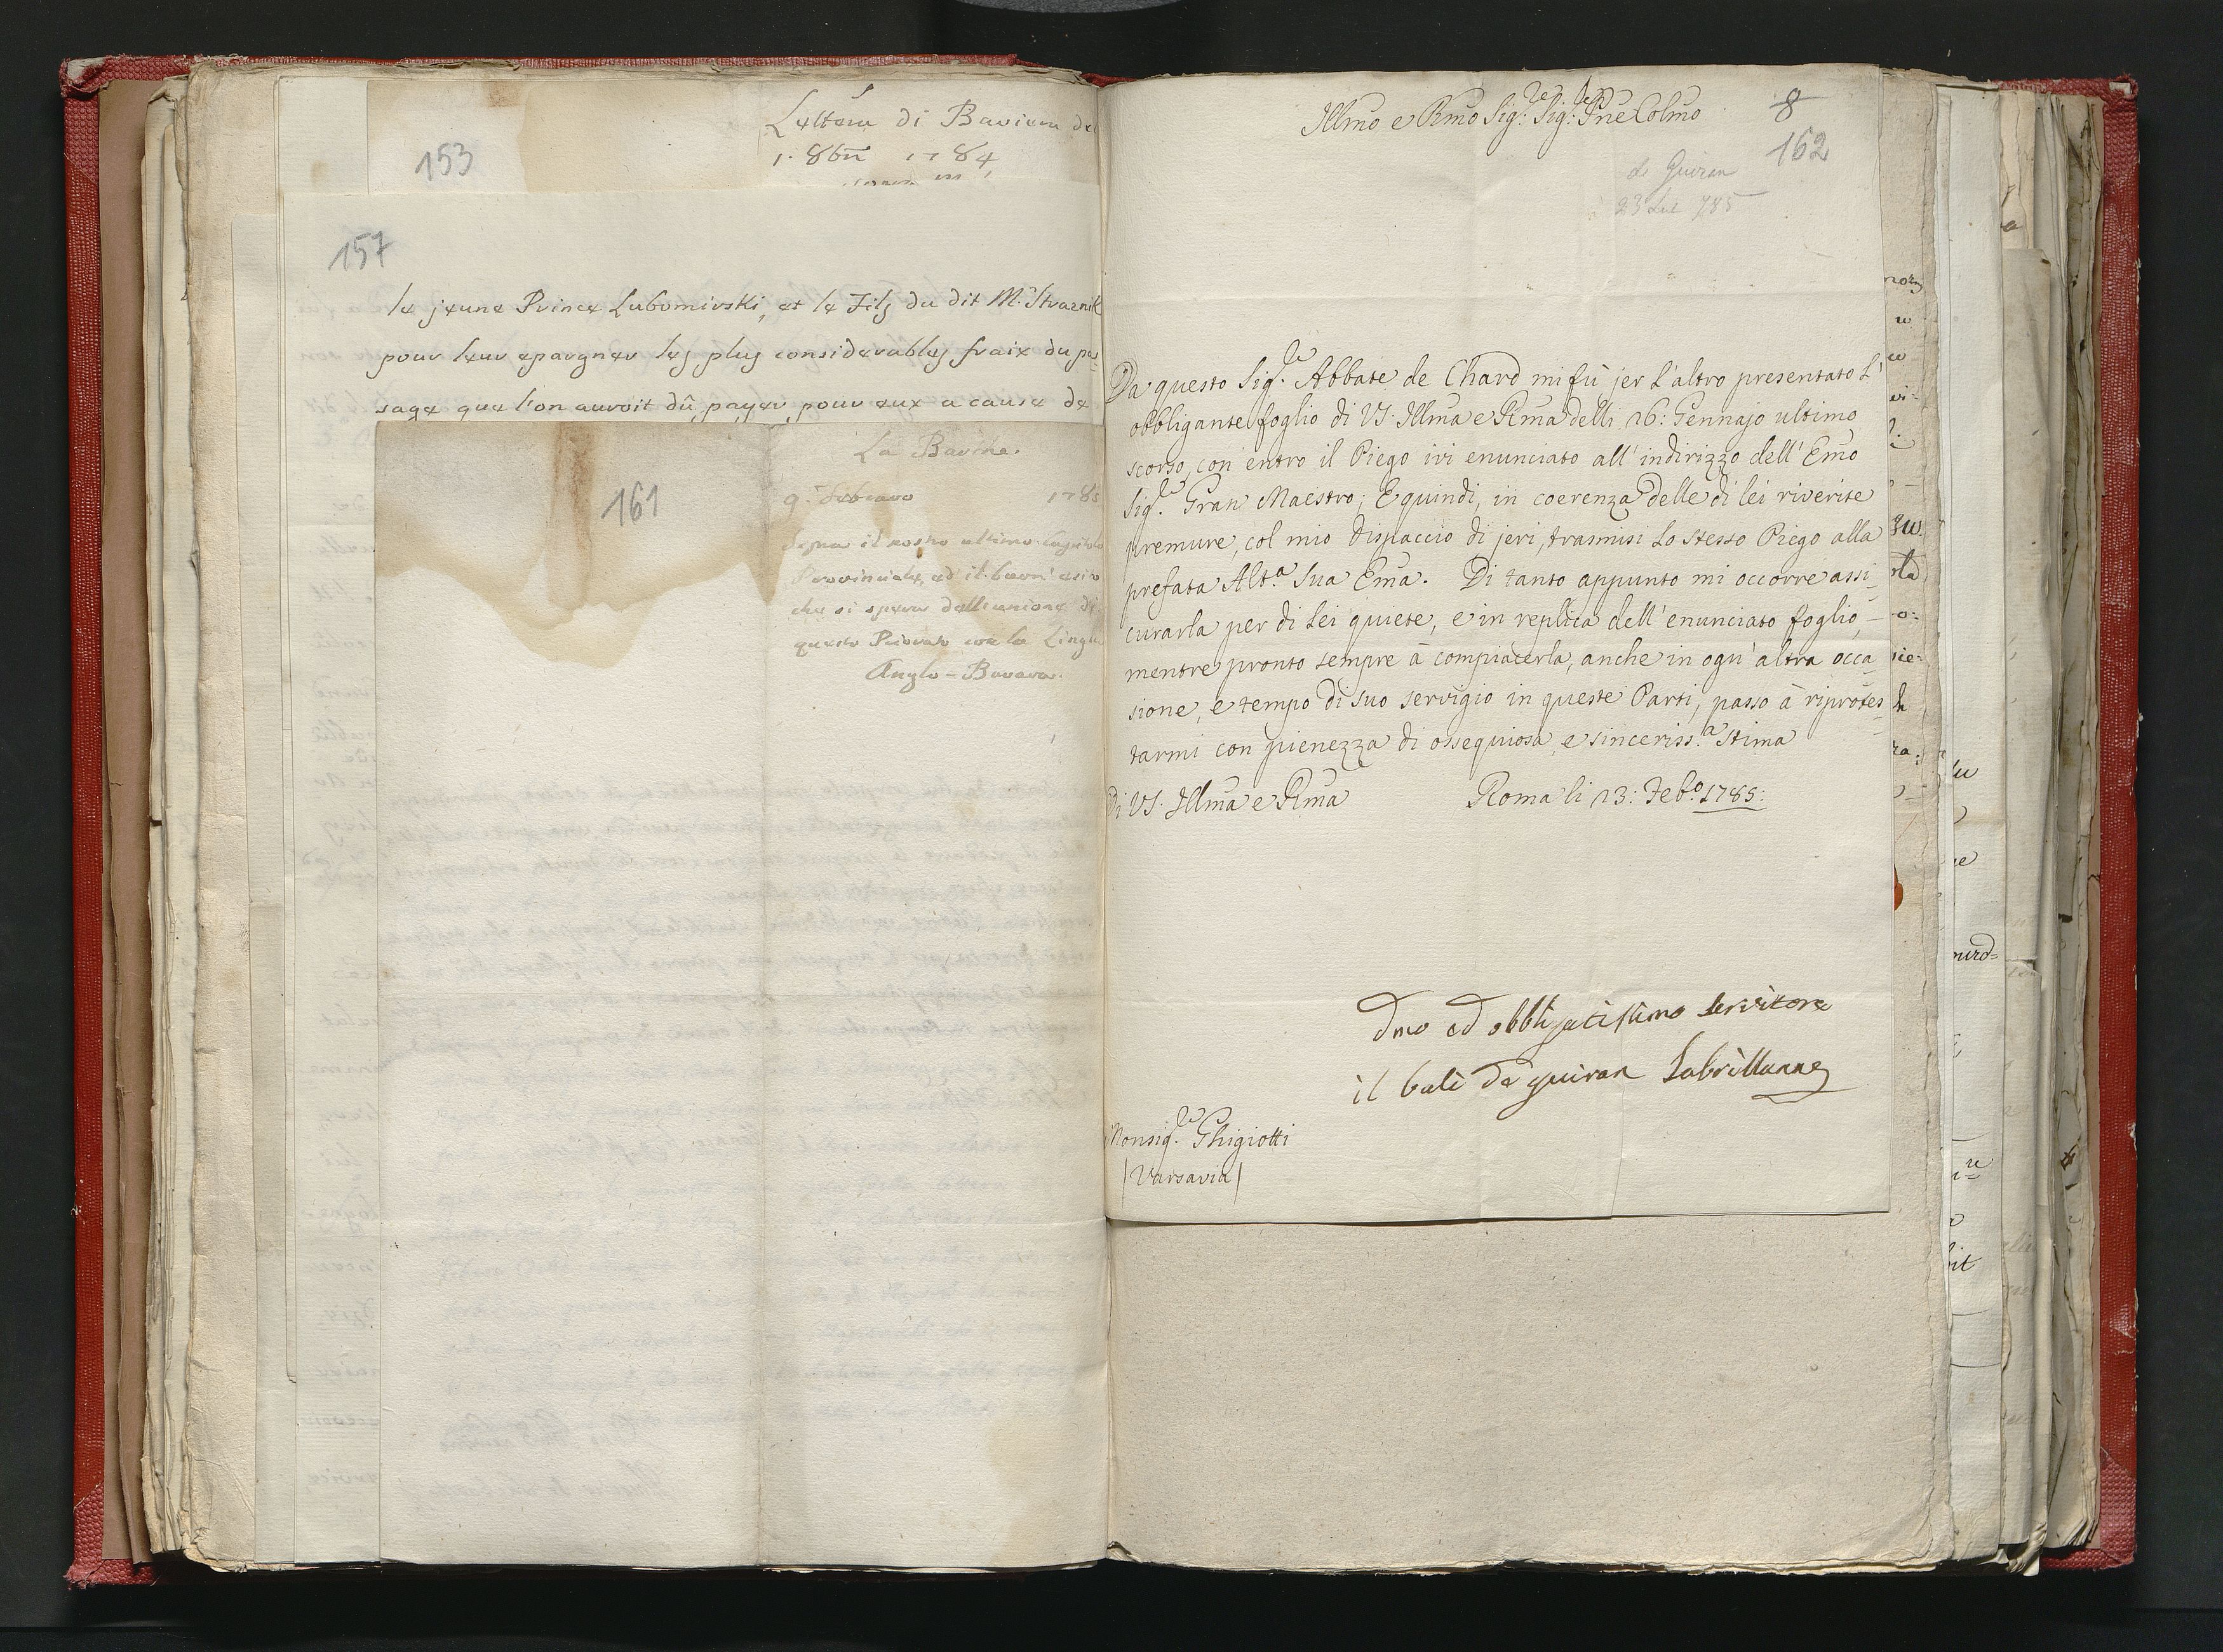 Lettera di Baviera del
1. 8bre 1784
153
157
le jeune Prince Lubomirski, et le Filz du dit M. Straznik
pour leur epargner les plus considerables fraix du pas-
sage que l'on auroit dû payer pour eux a cause de
La Baviere.
161
9. Febraro 1785
sopra il nostro ultimo Capitolo
Provinciale, ed il buon' esito
che si spera dall'unione di
questo Priorato con la Lingua
Anglo-Bavara.
Illmo e Rmo Sig:re Sig:re Pne Colmo
8
162
de Guiran
23 785
Da questo Sig.re Abbate de Chard mi fù jer l'altro presentato l'
obbligante foglio di VS. Illma e Rma delli 16: Gennajo ultimo
scorso, con entro il Piego ivi enunciato all' indirizzo dell' Emo
Sig.re Gran Maestro; E quindi, in coerenza delle di lei riverite
premure, col mio dispaccio di jeri, trasmisi lo stesso Piego alla
prefata Alt.a Sua Ema. Di tanto appunto mi occorre assi-
curarla per di Lei quiete, e in replica dell' enunciato foglio,
mentre pronto sempre à compiacerla, anche in ogn' altra occa-
sione, e tempo di suo servigio in queste Parti, passo à riprotes-
tarmi con pienezza di ossequiosa, e sinceriss.a stima
Di VS. Illma e Rma Roma li 13: Feb.o 1785:
Dmo ed obbligatissimo servitore
il bali de guiran Labrillanne
Monsig.re Ghigiotti
(Varsavia)